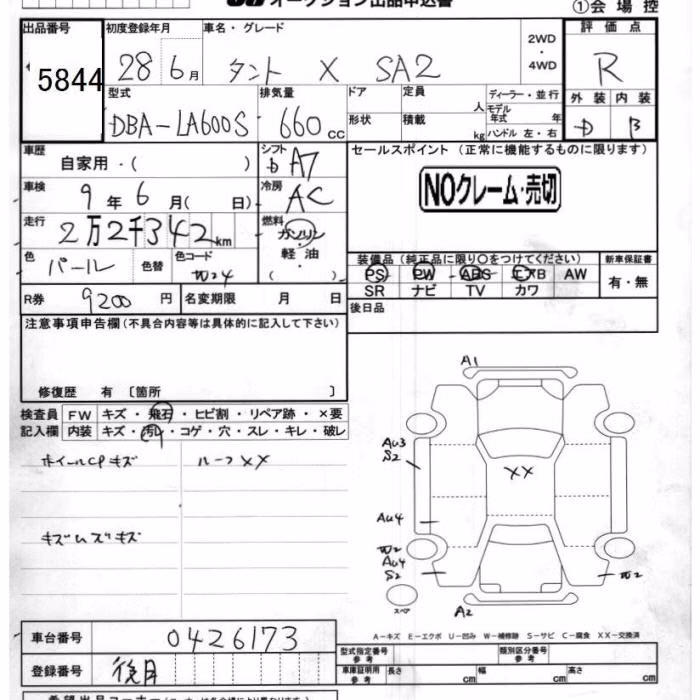 オークション出品申込書
①会場控
出品番号 初度登録年月 車名・グレード 評価点
5844 28 6月 タント X SA2 2WD・4WD R
型式 排気量 ドア 定員 人 ディーラー・並行 外装 内装
DBA-LA600S 660cc 形状 積載 kg モデル年式 年 D B
ハンドル 左・右
車歴 自家用・( ) シフト AT セールスポイント (正常に機能するものに限ります)
車検 9年6月( 日) 冷房 AC NOクレーム・売切
走行 2万2千342km 燃料 ガソリン
軽油
( )
色 パール 色替 色コード W24
装備品(純正品に限り○をつけてください) 新車保証書
PS PW ABS エアB AW 有・無
SR ナビ TV カワ
R券 9200円 名変期限 月 日 後日品
注意事項申告欄(不具合内容等は具体的に記入して下さい)
修復歴 有 〔箇所 〕
検査員 FW キズ・飛石・ヒビ割・リペア跡・×要
記入欄 内装 キズ・汚れ・コゲ・穴・スレ・キレ・破レ
ホイールCPキズ ルーフXX
キズムズキズ
A1
AU3
S2
XX
AU4
W2
AU4
S2
W2
スペア
A2
A-キズ E-エクボ U-凹み W-補修跡 S-サビ C-腐食 XX-交換済
車台番号 0426173
登録番号 後日
型式指定番号 参考 類別区分番号 参考
車庫証明用 参考 長さ cm 幅 cm 高さ cm